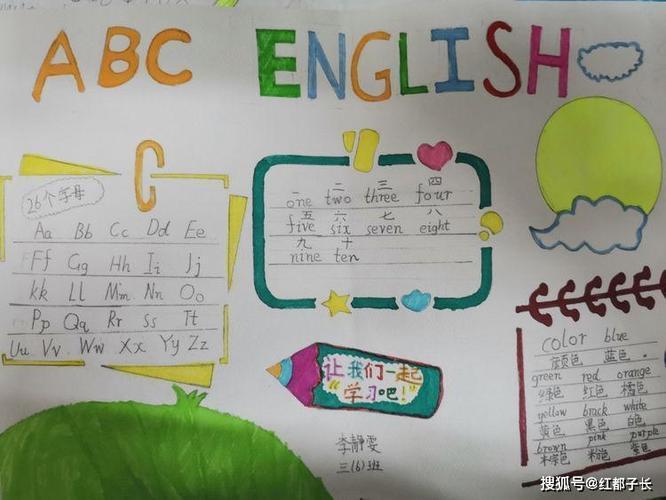 ABC ENGLISH
C
26个字母
Aa Bb Cc Dd Ee
Ff Gg Hh Ii Jj
kk Ll Mm Nn Oo
Pp Qq Rr Ss Tt
Uu Vv Ww Xx Yy Zz
一 二 三 四
one two three four
五 六 七 八
five six seven eight
九 十
nine ten
让我们一起
“学习吧!”
李静雯
三(6)班
color blue
颜色 蓝色
green red orange
绿色 红色 橘色
yellow brack white
黄色 黑色 白色
brown pink purple
棕色 粉色 紫色
搜狐号@红都子长